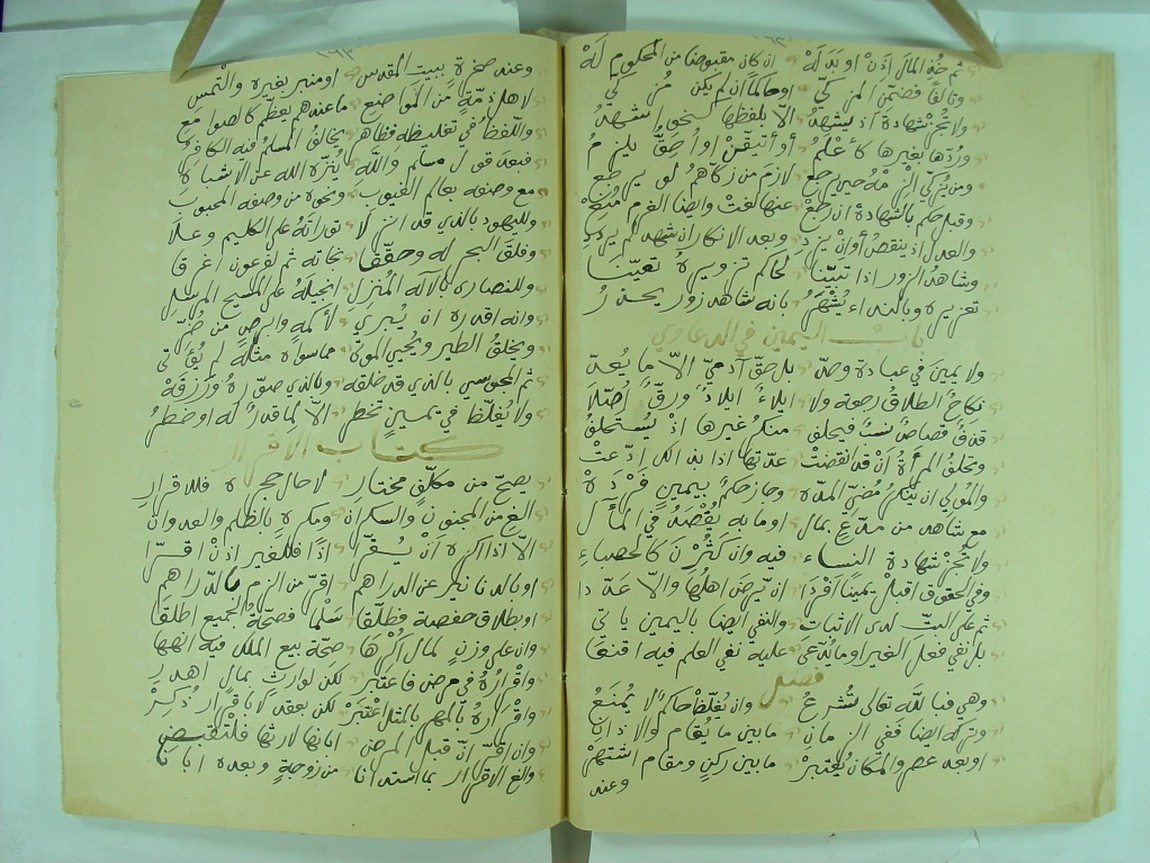 ثم خذ المال إذن أو بدله ان كان مقبوضا من المحكوم له
وتالفا فضمن المزكي او حاكما ان لم يكن مزكي
ولا تجز شهادة اذ يشهد الا بلفظها كنحو اشهد
وردها بغيرها كأعلم أو أتيقن او أحق يلزم
ومن يزكي الزمه حين يرجع لازم من زكاهم لو يرجع
وقبل حكم بالشهادة ان رجع عنها لغت وايضا الغرم منع
والعدل اذ ينقص أو ان يزد وبعد الانكار ان شهد لم يرد
وشاهد الزور اذا تبينا لحاكم تزويره تعينا
تعزيره وبالنداء يشهر بانه شاهد زور يحذر
باب اليمين في الدعاوي
ولا يمين في عبادة وحد بل حق آدمي الا ما يعد
نكاح الطلاق رجعة ولا ايلاء ايلاد ورق أصلا
قذف قصاص نسب فيحلف منكر غيرها اذ يستحلف
وتحلف المرأة أن قد انقضت عدتها اذا بذلك ادعت
والمولي ان ينكر مضي المده وجاز حكم بيمين فرده
مع شاهد من مدع بمال او ما به يقصد في المآل
ولا تجز شهادة النساء فيه وان كثرن كالحصباء
وفي الحقوق اقبل يمينا أفردا ان يرض اهلها والا عددا
ثم على البت لدى الاثبات والنفي ايضا باليمين ياتي
بل نفي فعل الغير او ما يدعى عليه نفي العلم فيه اقنعا
فصل
وهي فبالله تعالى تشرع وان يغلظ حاكم لا يمنع
وتركه ايضا ففي الزمان ما بين ما يقام والاذان
او بعد عصر والمكان يعتبر ما بين ركن ومقام اشتهر
وعند
وعند صخرة ببيت المقدس او منبر بغيره والتمس
لاهل ذمة من المواضع ما عندهم يعظم كالصوامع
واللفظ في تغليظه فظاهر يخالف المسلم فيه الكافر
فبعد قول مسلم والله ينزه الله عن الاشباه
مع وصفه بعالم الغيوب ونحوه من وصفه المحبوب
ولليهود بالذي قد انزلا توراته على الكليم وعلا
وفلق البحر له وحققا نجاته ثم لفرعون اغرقا
وللنصارى بالاله المنزل انجيله على المسيح المرسل
وانه اقدره ان يبري لأكمه وابرص من ضر
ويخلق الطير ويحيي الموتى مما سواه مثله لم يؤتى
ثم المجوسي بالذي قد خلقه وبالذي صوره ورزقه
ولا يغلظ في خسيس تحظر الا لما قدر له او خطر
كتاب الاقرار
يصح من مكلف مختار لا حال حجره فللاقرار
الغ من المجنون والسكران ومكره بالظلم والعدوان
الا اذا اكره أن يقرا اذا فللغير اذن اقرا
او بالدنانير عن الدراهم اقر من الزم بالدراهم
او بطلاق حفصة فطلقا سلما فصحة الجميع اطلقا
وان على وزن لمال أكرها صحة بيع الملك فيه انهها
واقراره في مرض فاعتبر لكن لوارث بمال اهدر
واقراره بالمهر بالمثل اعتبر لكن بعقد لا باقرار ذكر
وان اقر أن قبل المرض ابانها لارثها فلتقبض
والغ الاقرار بما استدانا من زوجة وبعده ابانا